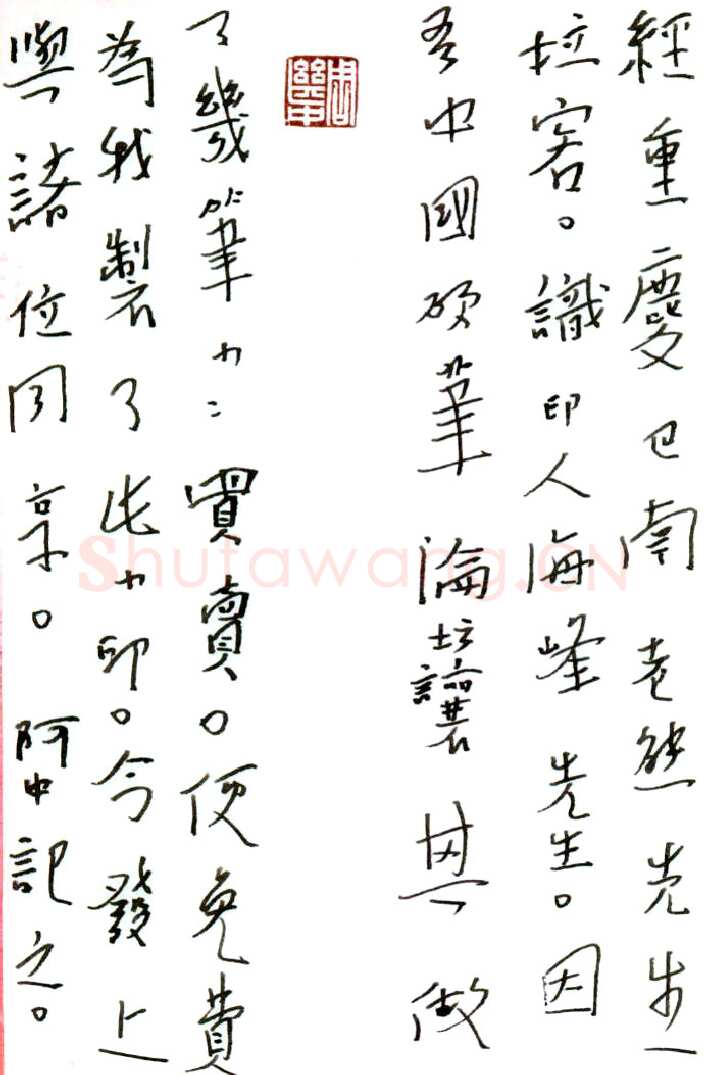 經重慶巴南老熊先生
拉客。識印人海峰先生。因
吾中國硬筆論坛讓其做
了幾筆小〻買賣。便免費
為我製了此小印。今發上
與諸位同享。阿中記之。
Shufawang.CN